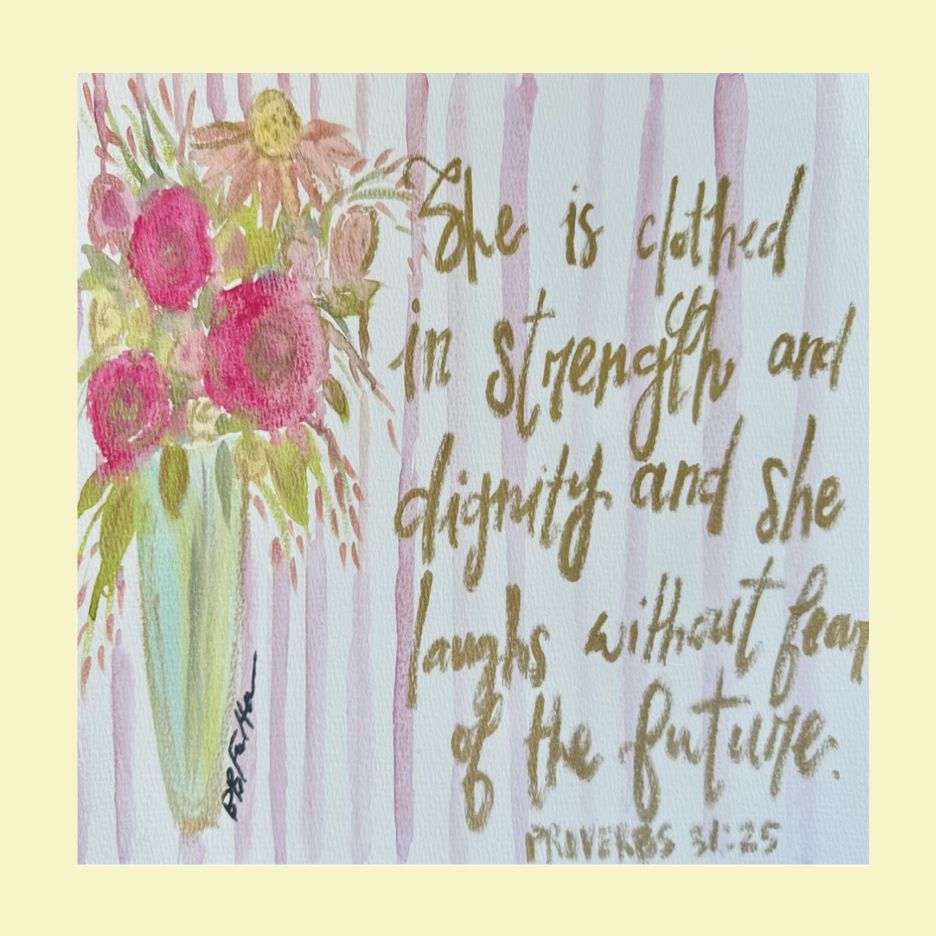 She is clothed
in strength and
dignity and she
laughs without fear
of the future.
PROVERBS 31:25